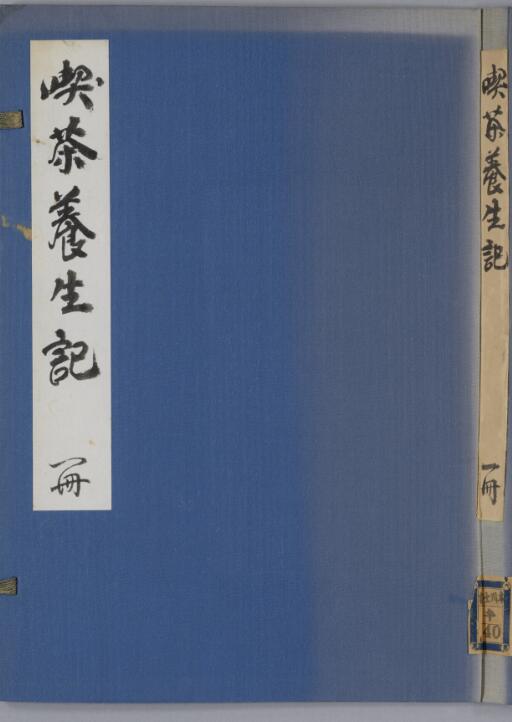 喫茶養生記
一冊
喫茶養生記
一冊
40